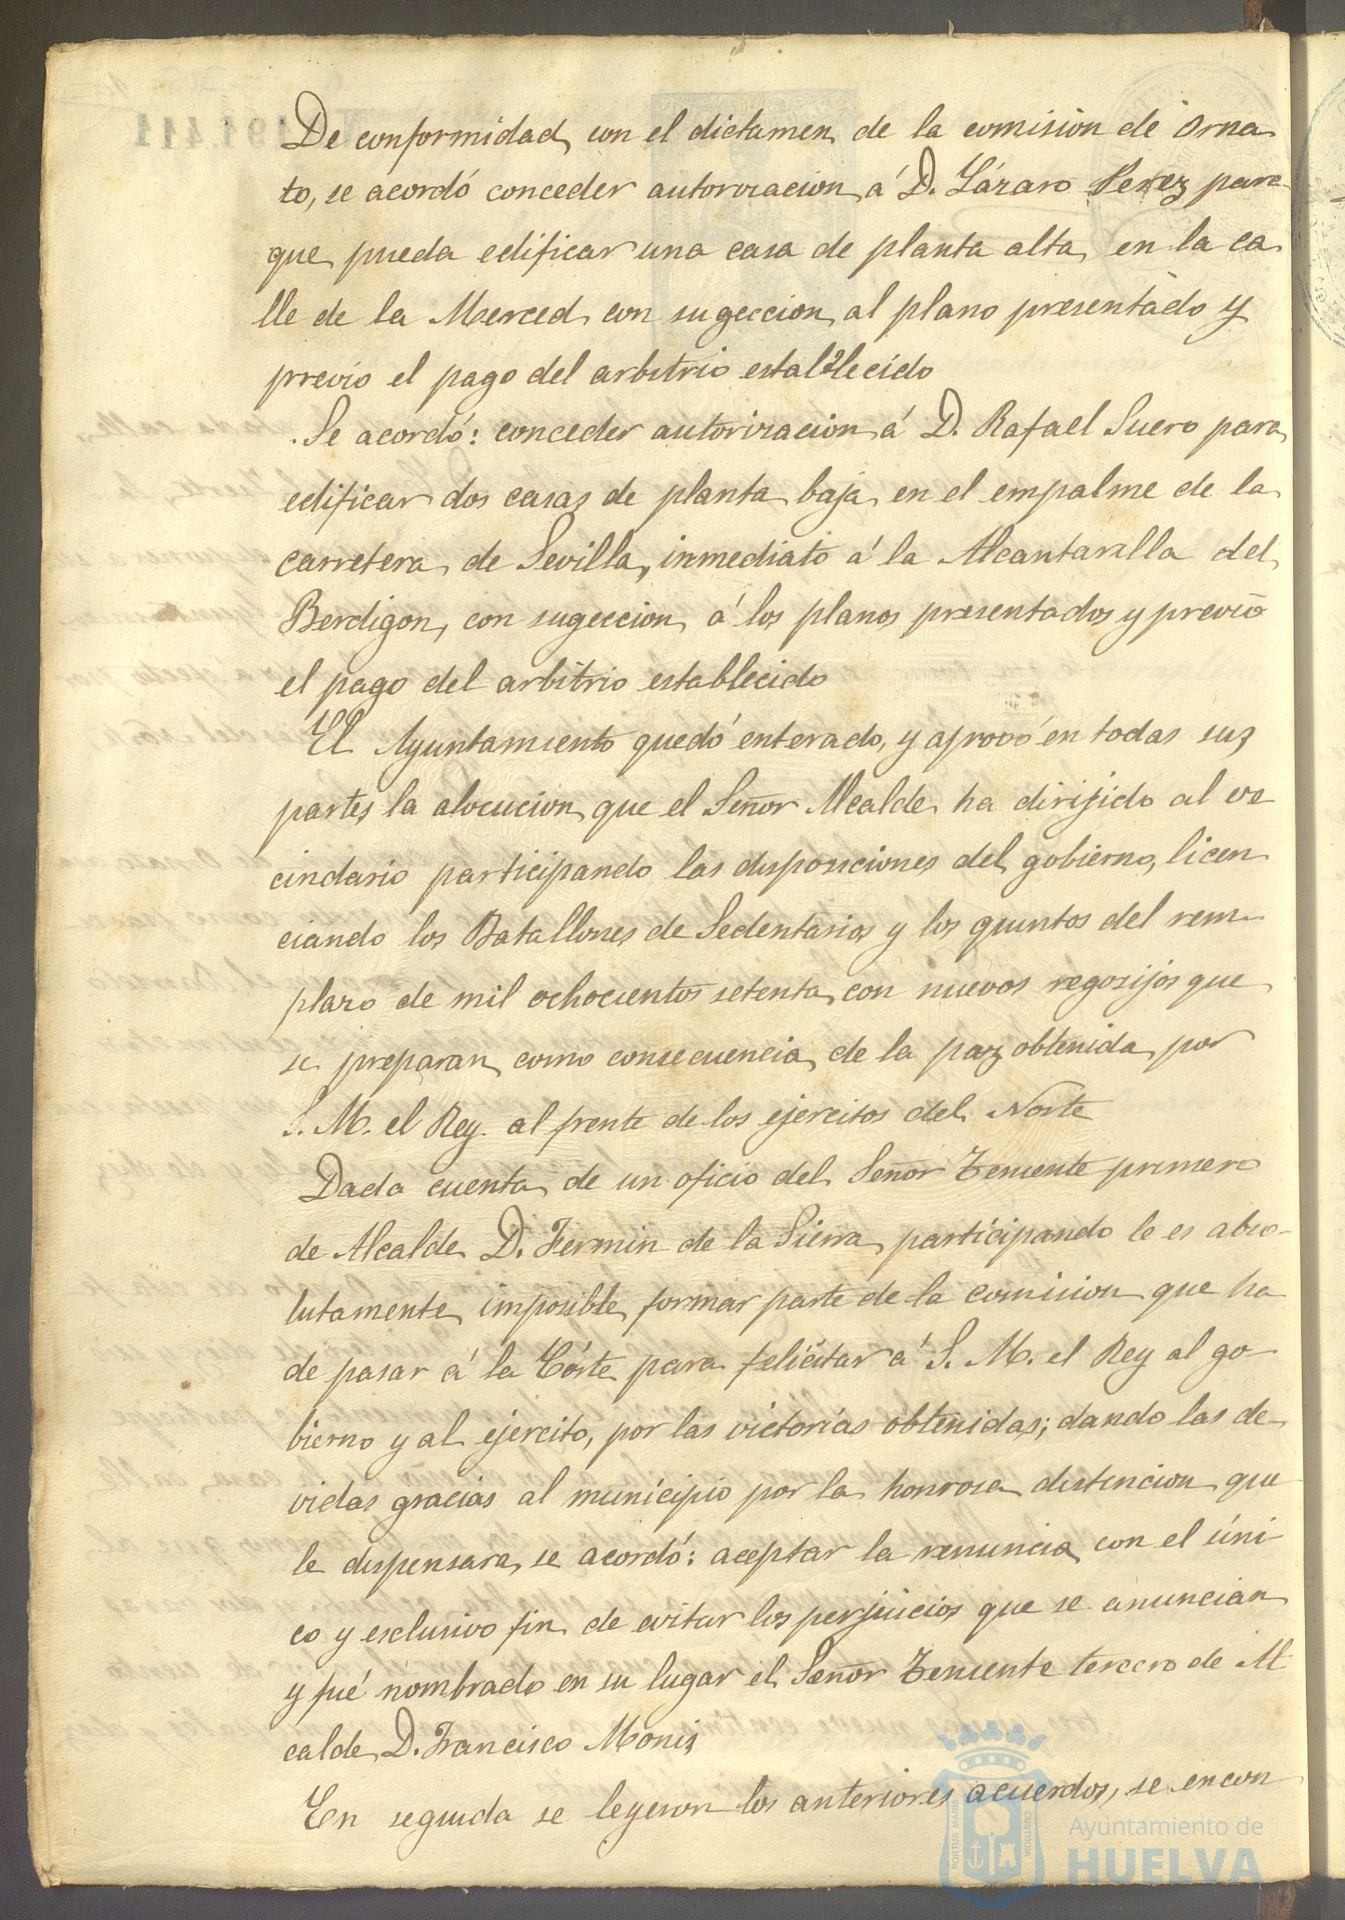 De conformidad con el dictamen de la comision de Orna
to, se acordó conceder autorizacion á D. Lázaro Perez para
que pueda edificar una casa de planta alta en la ca
lle de la Merced con sugeccion al plano presentado y
previo el pago del arbitrio establecido
Se acordó: conceder autorizacion á D. Rafael Suero para
edificar dos casas de planta baja en el empalme de la
carretera de Sevilla, inmediato á la Alcantarilla del
Berdigon, con sugeccion á los planos presentados y previo
el pago del arbitrio establecido
El Ayuntamiento quedó enterado, y aprovó en todas sus
partes la alocucion que el Señor Alcalde ha dirijido al ve
cindario participando las disposiciones del gobierno, licen
ciando los Batallones de Sedentarios y los quintos del rem
plazo de mil ochocientos setenta, con nuevos regozijos que
se preparan como consecuencia de la paz obtenida por
S. M. el Rey al frente de los ejercitos del Norte
Dada cuenta de un oficio del Señor Teniente primero
de Alcalde D. Fermin de la Sierra participando le es abso-
lutamente imposible formar parte de la comision que ha
de pasar á la Córte para felicitar á S. M. el Rey al go-
bierno y al ejército, por las victorias obtenidas; dando las de-
vidas gracias al municipio por la honrosa distincion que
le dispensara, se acordó: aceptar la renuncia con el úni-
co y esclusivo fin de evitar los perjuicios que se anuncian
y fué nombrado en su lugar el Señor Teniente tercero de Al
calde D. Francisco Moniz
En seguida se leyeron los anteriores acuerdos, se encon
Ayuntamiento de
HUELVA
PORTUS MARIS
CUSTODIA